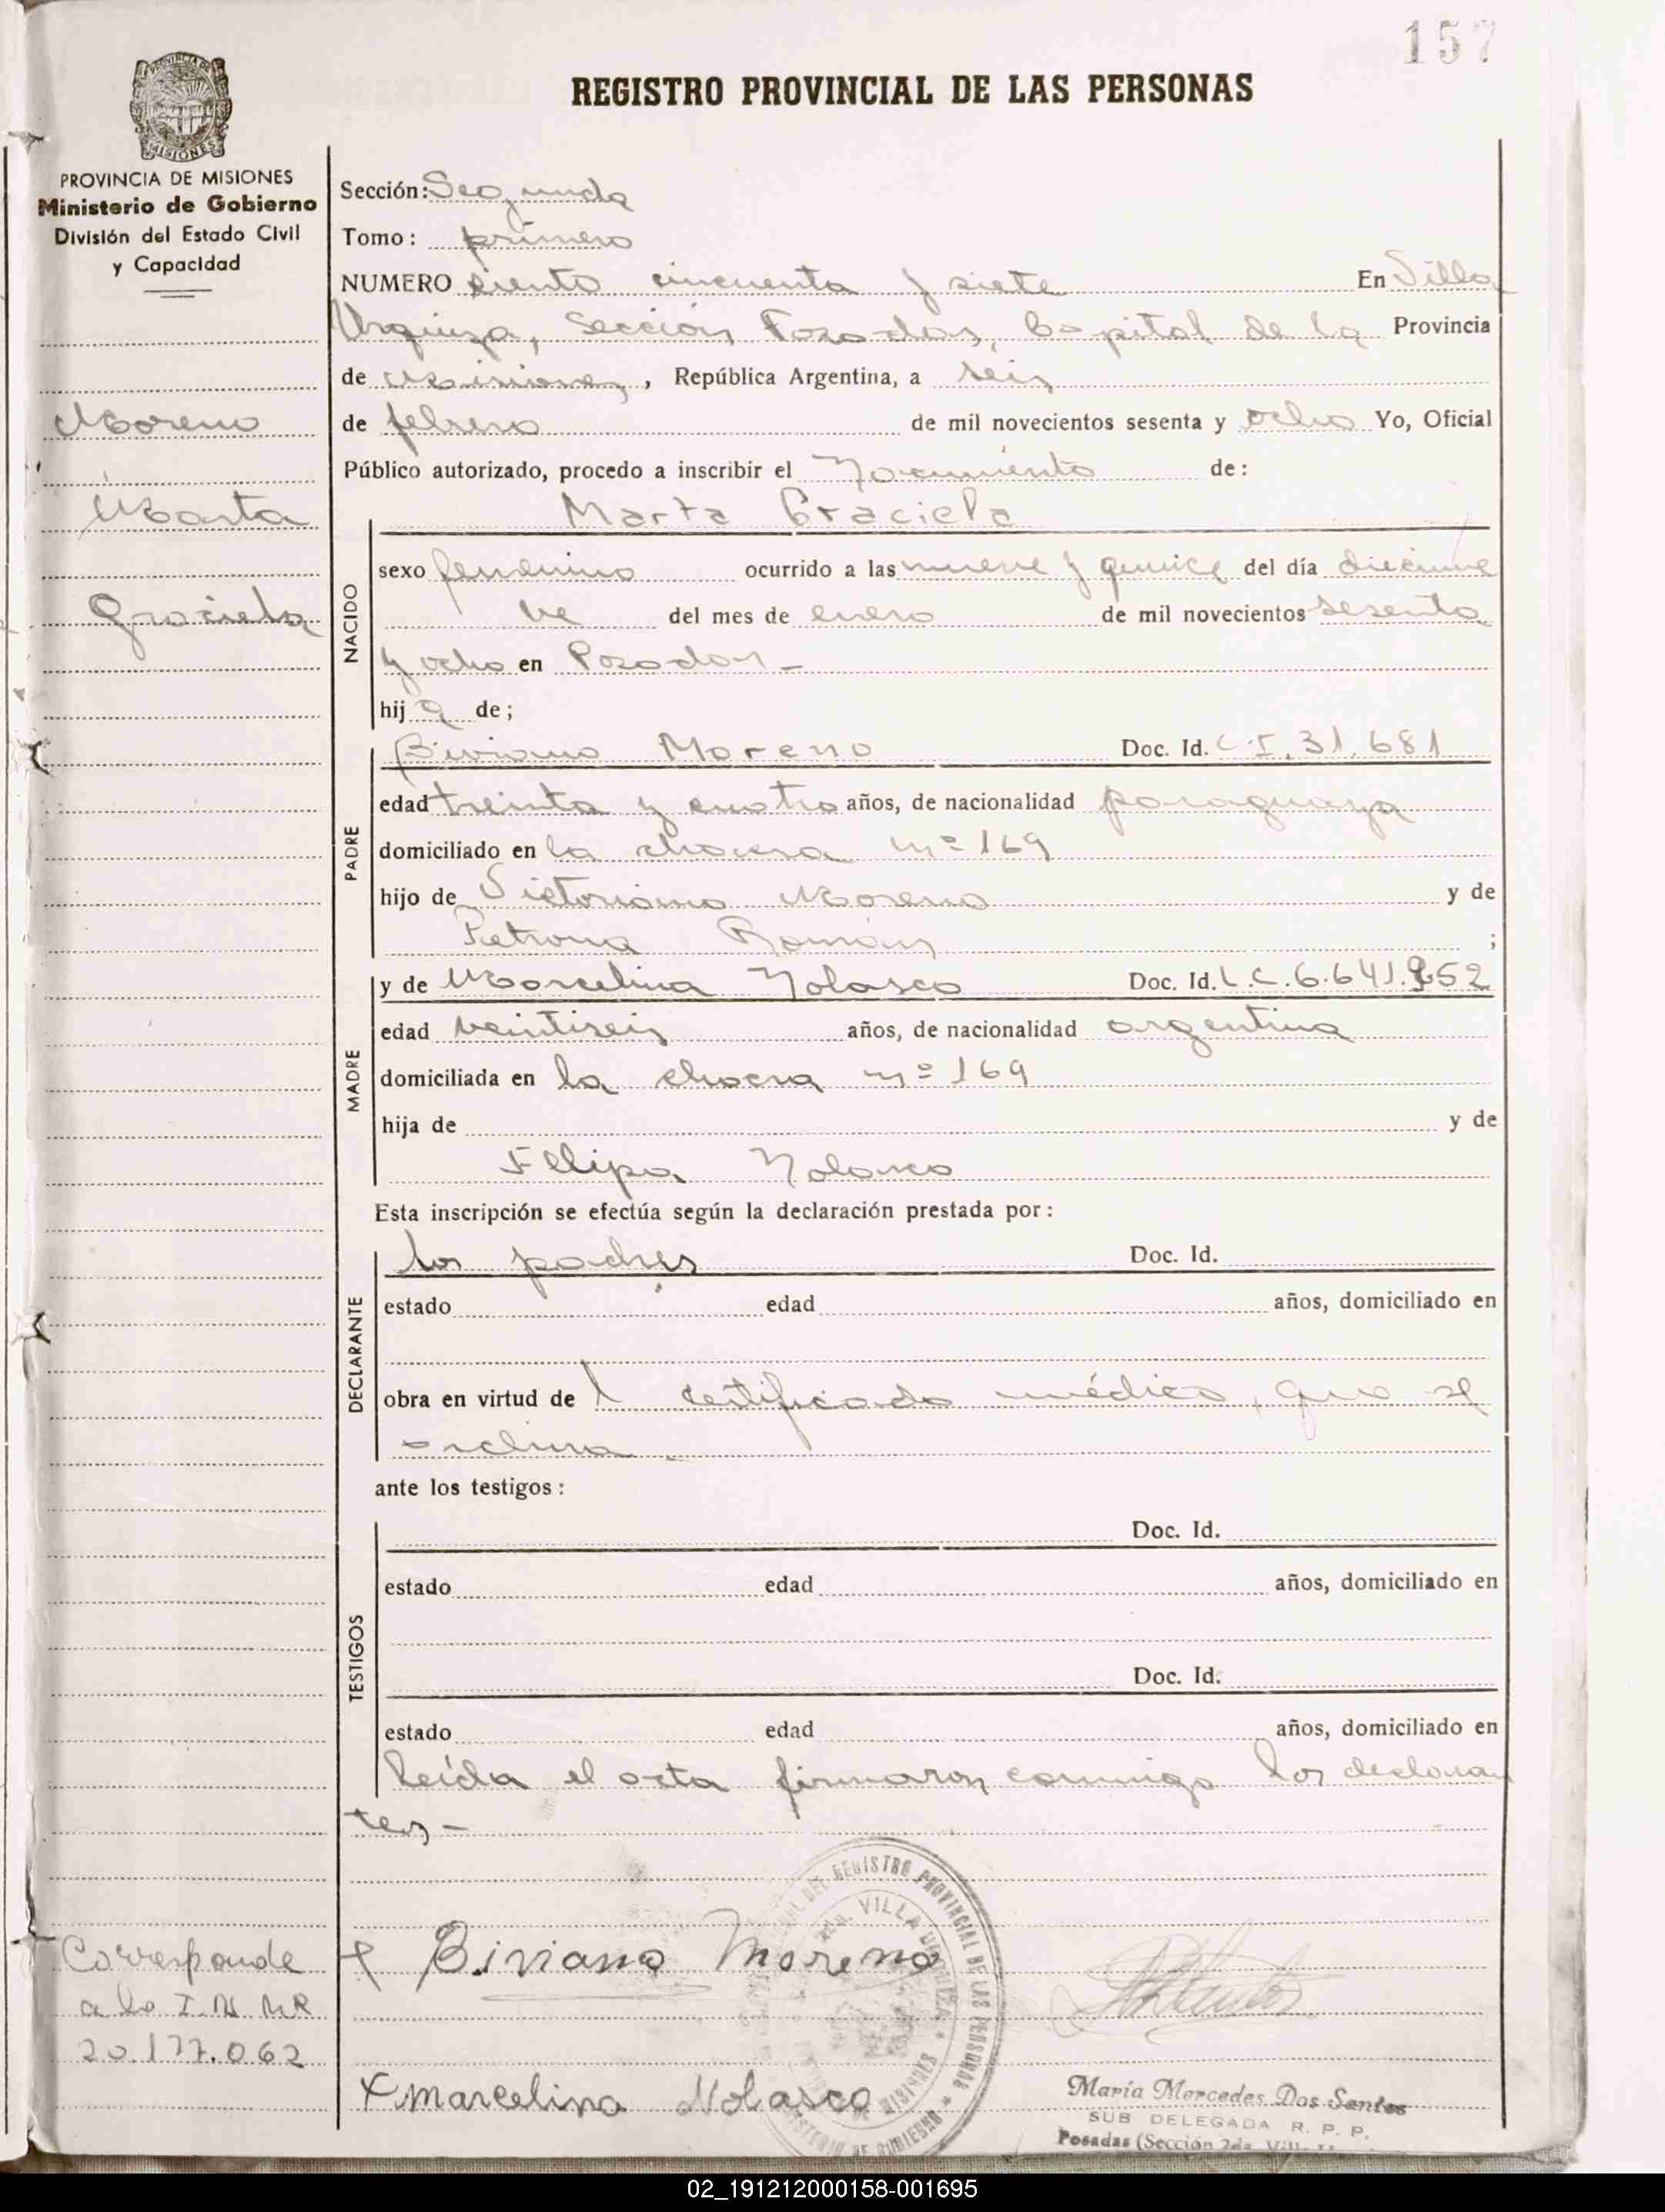 157
REGISTRO PROVINCIAL DE LAS PERSONAS
PROVINCIA DE MISIONES
MISIONES
PROVINCIA DE MISIONES
Ministerio de Gobierno
División del Estado Civil
y Capacidad
Moreno
Marta
Graciela
Sección: Segunda
Tomo: primero
NUMERO ciento cincuenta y siete En Villa
Urquiza, Sección Posadas, Capital de la Provincia
de Misiones, República Argentina, a seis
de febrero de mil novecientos sesenta y ocho Yo, Oficial
Público autorizado, procedo a inscribir el Nacimiento de:
Marta Graciela
NACIDO
sexo femenino ocurrido a las nueve y quince del día diecinue
ve del mes de enero de mil novecientos sesenta
y ocho en Posadas -
hij a de;
PADRE
Biviano Moreno Doc. Id. C.I. 31.681
edad treinta y cuatro años, de nacionalidad paraguaya
domiciliado en la chacra nº 169
hijo de Victoriano Moreno y de
Petrona Román ;
MADRE
y de Marcelina Nolasco Doc. Id. L.C. 6.641.952
edad veintiseis años, de nacionalidad argentina
domiciliada en la chacra nº 169
hija de y de
Felipa Nolasco
Esta inscripción se efectúa según la declaración prestada por:
DECLARANTE
los padres Doc. Id.
estado edad años, domiciliado en
obra en virtud de l certificado médico, que se
archiva
ante los testigos:
TESTIGOS
Doc. Id.
estado edad años, domiciliado en
Doc. Id.
estado edad años, domiciliado en
leída el acta firmaron conmigo los declaran
tes -
DEL REGISTRO PROVINCIAL DE LAS PERSONAS
VILLA URQUIZA
MISIONES
MINISTERIO DE GOBIERNO
Corresponde
a la I.N. MR
20.177.062
x Biviano Moreno
x Marcelina Nolasco
María Mercedes Dos Santos
SUB DELEGADA R. P. P.
Posadas (Sección 2da.
02_191212000158-001695